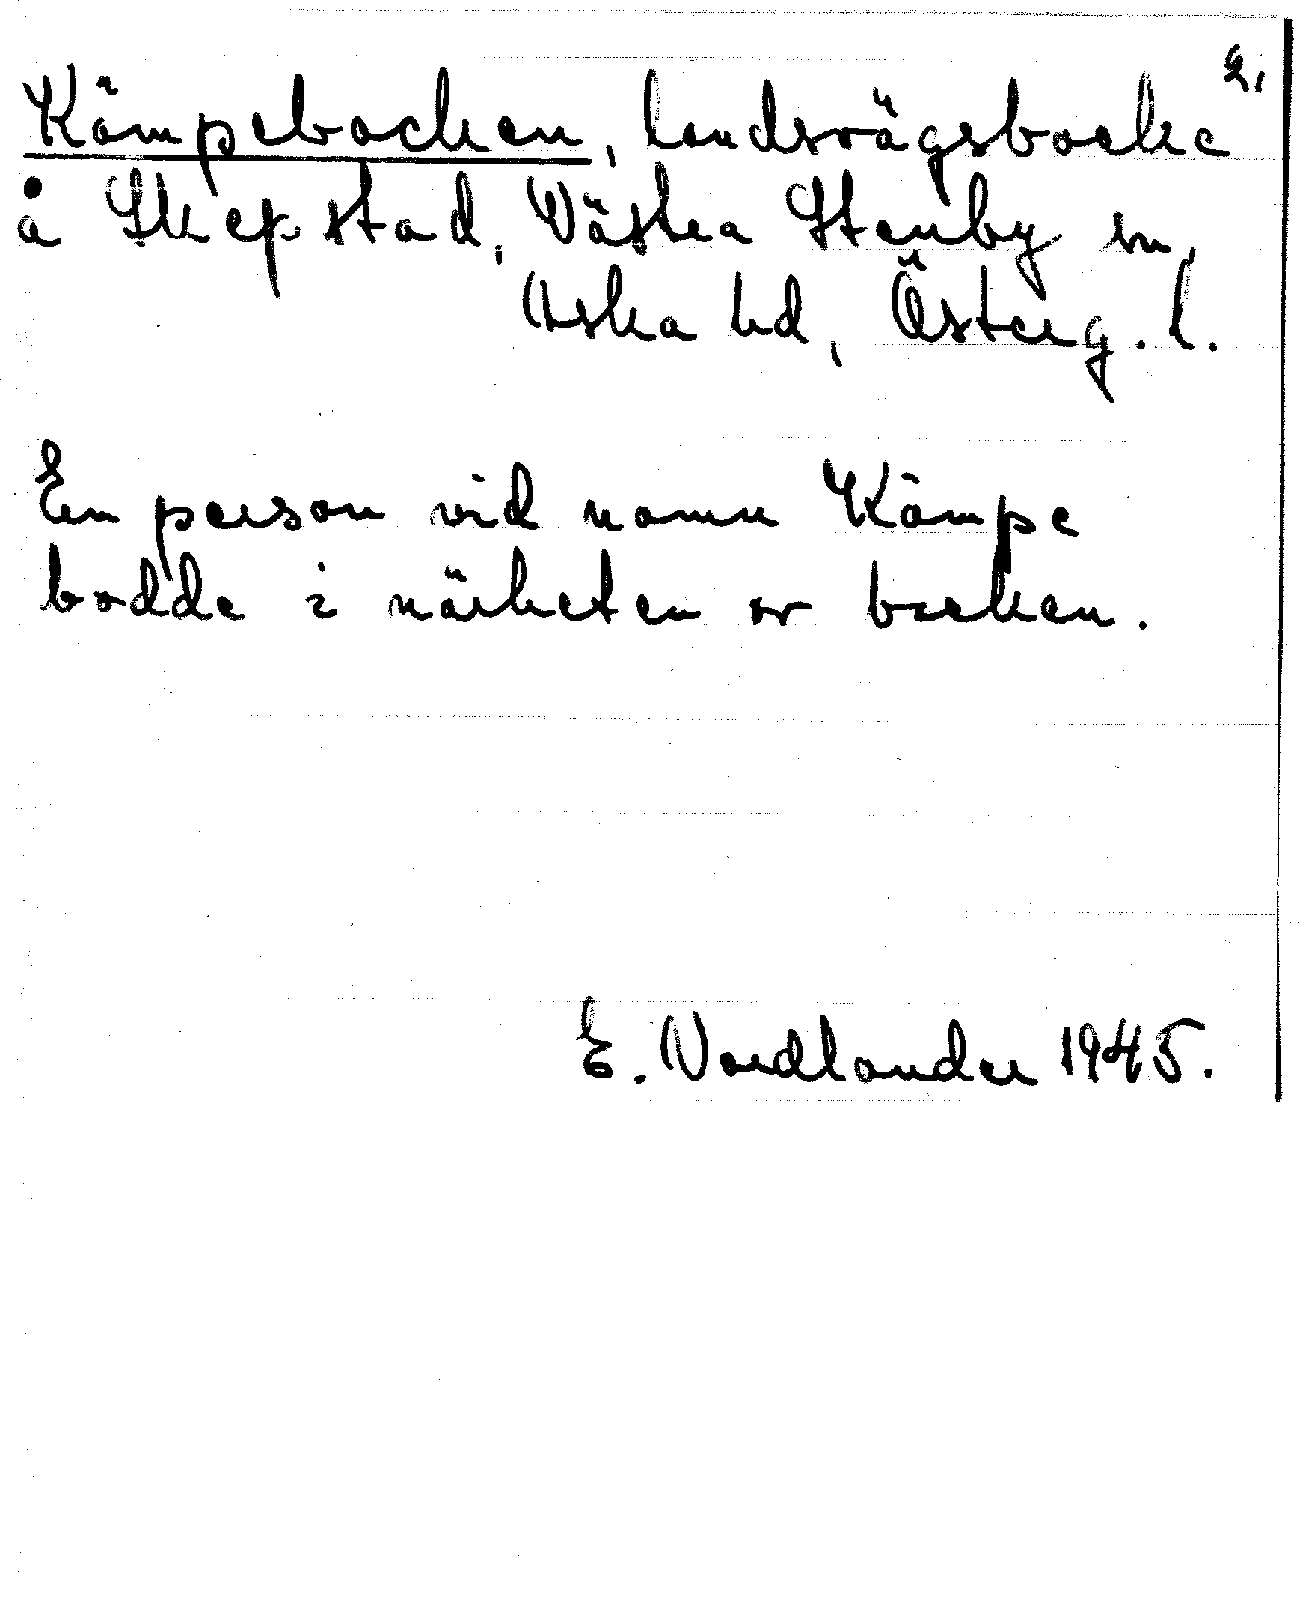 2.
Kämpebacken, landsvägsbacke
å Skepstad, Västra Stenby sn,
Aska hd, Österg. l.
En person vid namn Kämpe
bodde i närheten av backen.
E. Nordlander 1945.